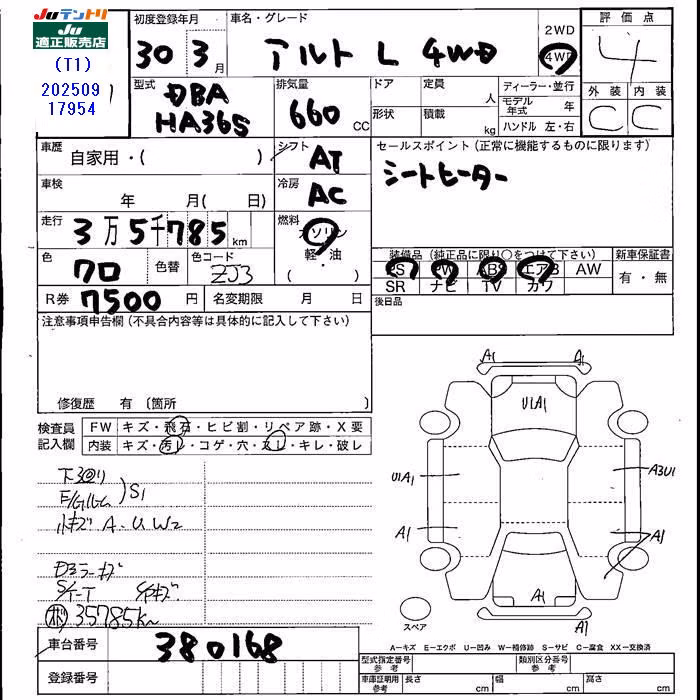 Juテントリ
JU
適正販売店
(T1)
202509
17954
初度登録年月
30 3月
車名・グレード
アルト L 4WD
2WD
4WD
評価点
4
型式
DBA
HA36S
排気量
660 CC
ドア
形状
定員 人
積載 kg
ディーラー・並行
モデル年式 年
ハンドル 左・右
外装 内装
C C
車歴
自家用・( )
シフト
AT
セールスポイント (正常に機能するものに限ります)
シートヒーター
車検 年 月( 日)
冷房
AC
走行
3万5千785km
燃料
ガソリン
軽・油
( ・ )
色
クロ
色替
色コード
ZJ3
装備品 (純正品に限り○をつけて下さい)
PS PW ABS エアB AW
SR ナビ TV カワ
新車保証書
有・無
R券 7500円
名変期限 月 日
後日品
注意事項申告欄 (不具合内容等は具体的に記入して下さい)
修復歴 有 〔箇所
検査員
記入欄
FW キズ・飛石・ヒビ割・リペア跡・X要
内装 キズ・汚レ・コゲ・穴・スレ・キレ・破レ
下回り
E/Gルーム )S1
小キズ A-U W2
35785km
車台番号 380168
登録番号
A1 A1
U1A1
U1A1
A3U1
A1
A1
A1
A1
スペア
A―キズ E―エクボ U―凹み W―補修跡 S―サビ C―腐食 XX―交換済
型式指定番号 参考
類別区分番号 参考
車庫証明用 参考
長さ cm 幅 cm 高さ cm